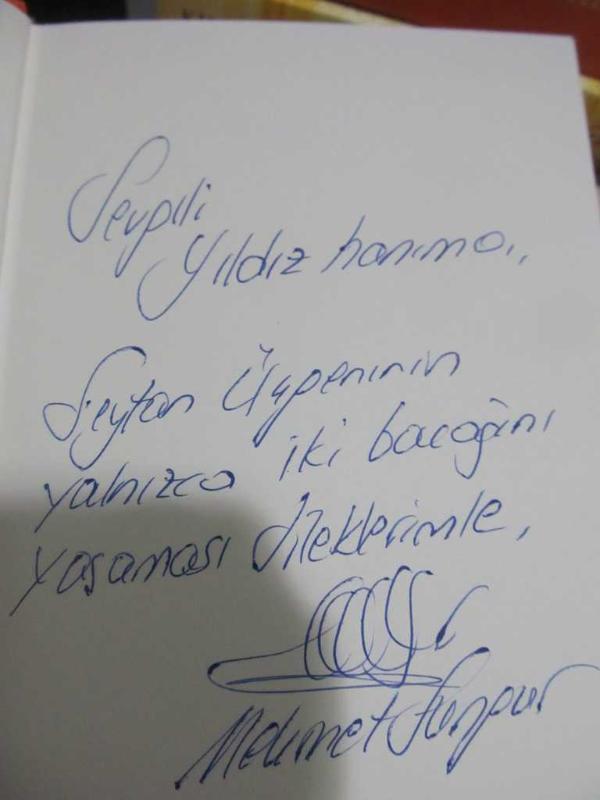 Sevgili
Yıldız hanıma,
Şeytan Üçgeninin
yalnızca iki bacağını
yaşaması dileklerimle,
Mehmet